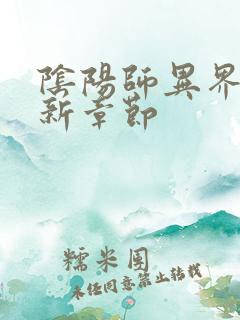 陰陽師異界
新章節
糯米團
未任同意禁止轉載